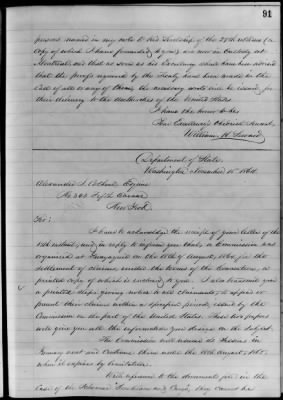 91
persons named in my note to His Lordship of the 27th ultimo (a
copy of which I have furnished to you) are now in custody at
Montreal; and that as soon as his Excellency shall have been advised
that the proofs required by the Treaty have been made in the
case of all or any of them, the necessary writs will be issued for
their delivery to the authorities of the United States.
I have the honor to be
Your Excellency's obedient Servant,
William H. Seward
Department of State.
Washington November 16th 1864.
Alexander J. Esquire
No 303 Fifth Avenue
New York.
Sir:
I have to acknowledge the receipt of your letter of the
15th instant, and in reply to inform you that a Commission was
organized at Guayaquil on the 18th of August, 1864, for the
settlement of claims under the terms of the Convention, a
printed copy of which is enclosed to you. I also transmit you
a printed slip giving notice to all claimants to offer or
present their claims within a specified period, issued by the
Commission on the part of the United States. These two papers
will give you all the information you desire on the subject.
The Commission will resume its Session in
January next and continue there until the 18th August, 1865,
when it expires by limitation.
With reference to the documents filed in the
case of the they cannot be